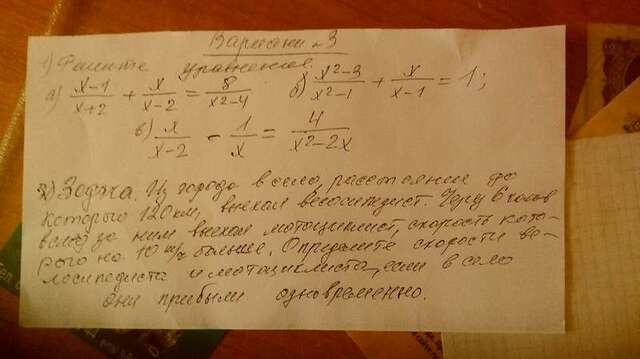 Вариант №3
1) Решите уравнения.
а) x-1/x+2 + x/x-2 = 8/x²-4 б) x²-3/x²-1 + x/x-1 = 1;
в) x/x-2 - 1/x = 4/x²-2x
2) Задача. Из города в село, расстояние до
которого 120 км, выехал велосипедист. Через 6 часов
вслед за ним выехал мотоциклист, скорость кото-
рого на 10 км/ч больше. Определите скорости ве-
лосипедиста и мотоциклиста, если в село
они прибыли одновременно.